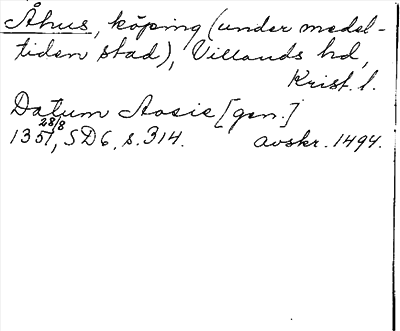 Åhus, köping (under medel-
tiden stad), Villands hd,
Krist. l.
Datum Aosie [gen.]
1351 28/8, SD 6, s. 314. avskr. 1494.